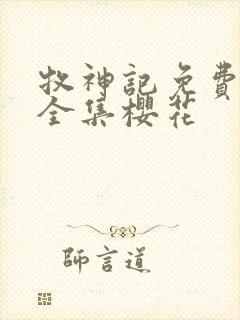 牧神記免費
全集櫻花
師言道